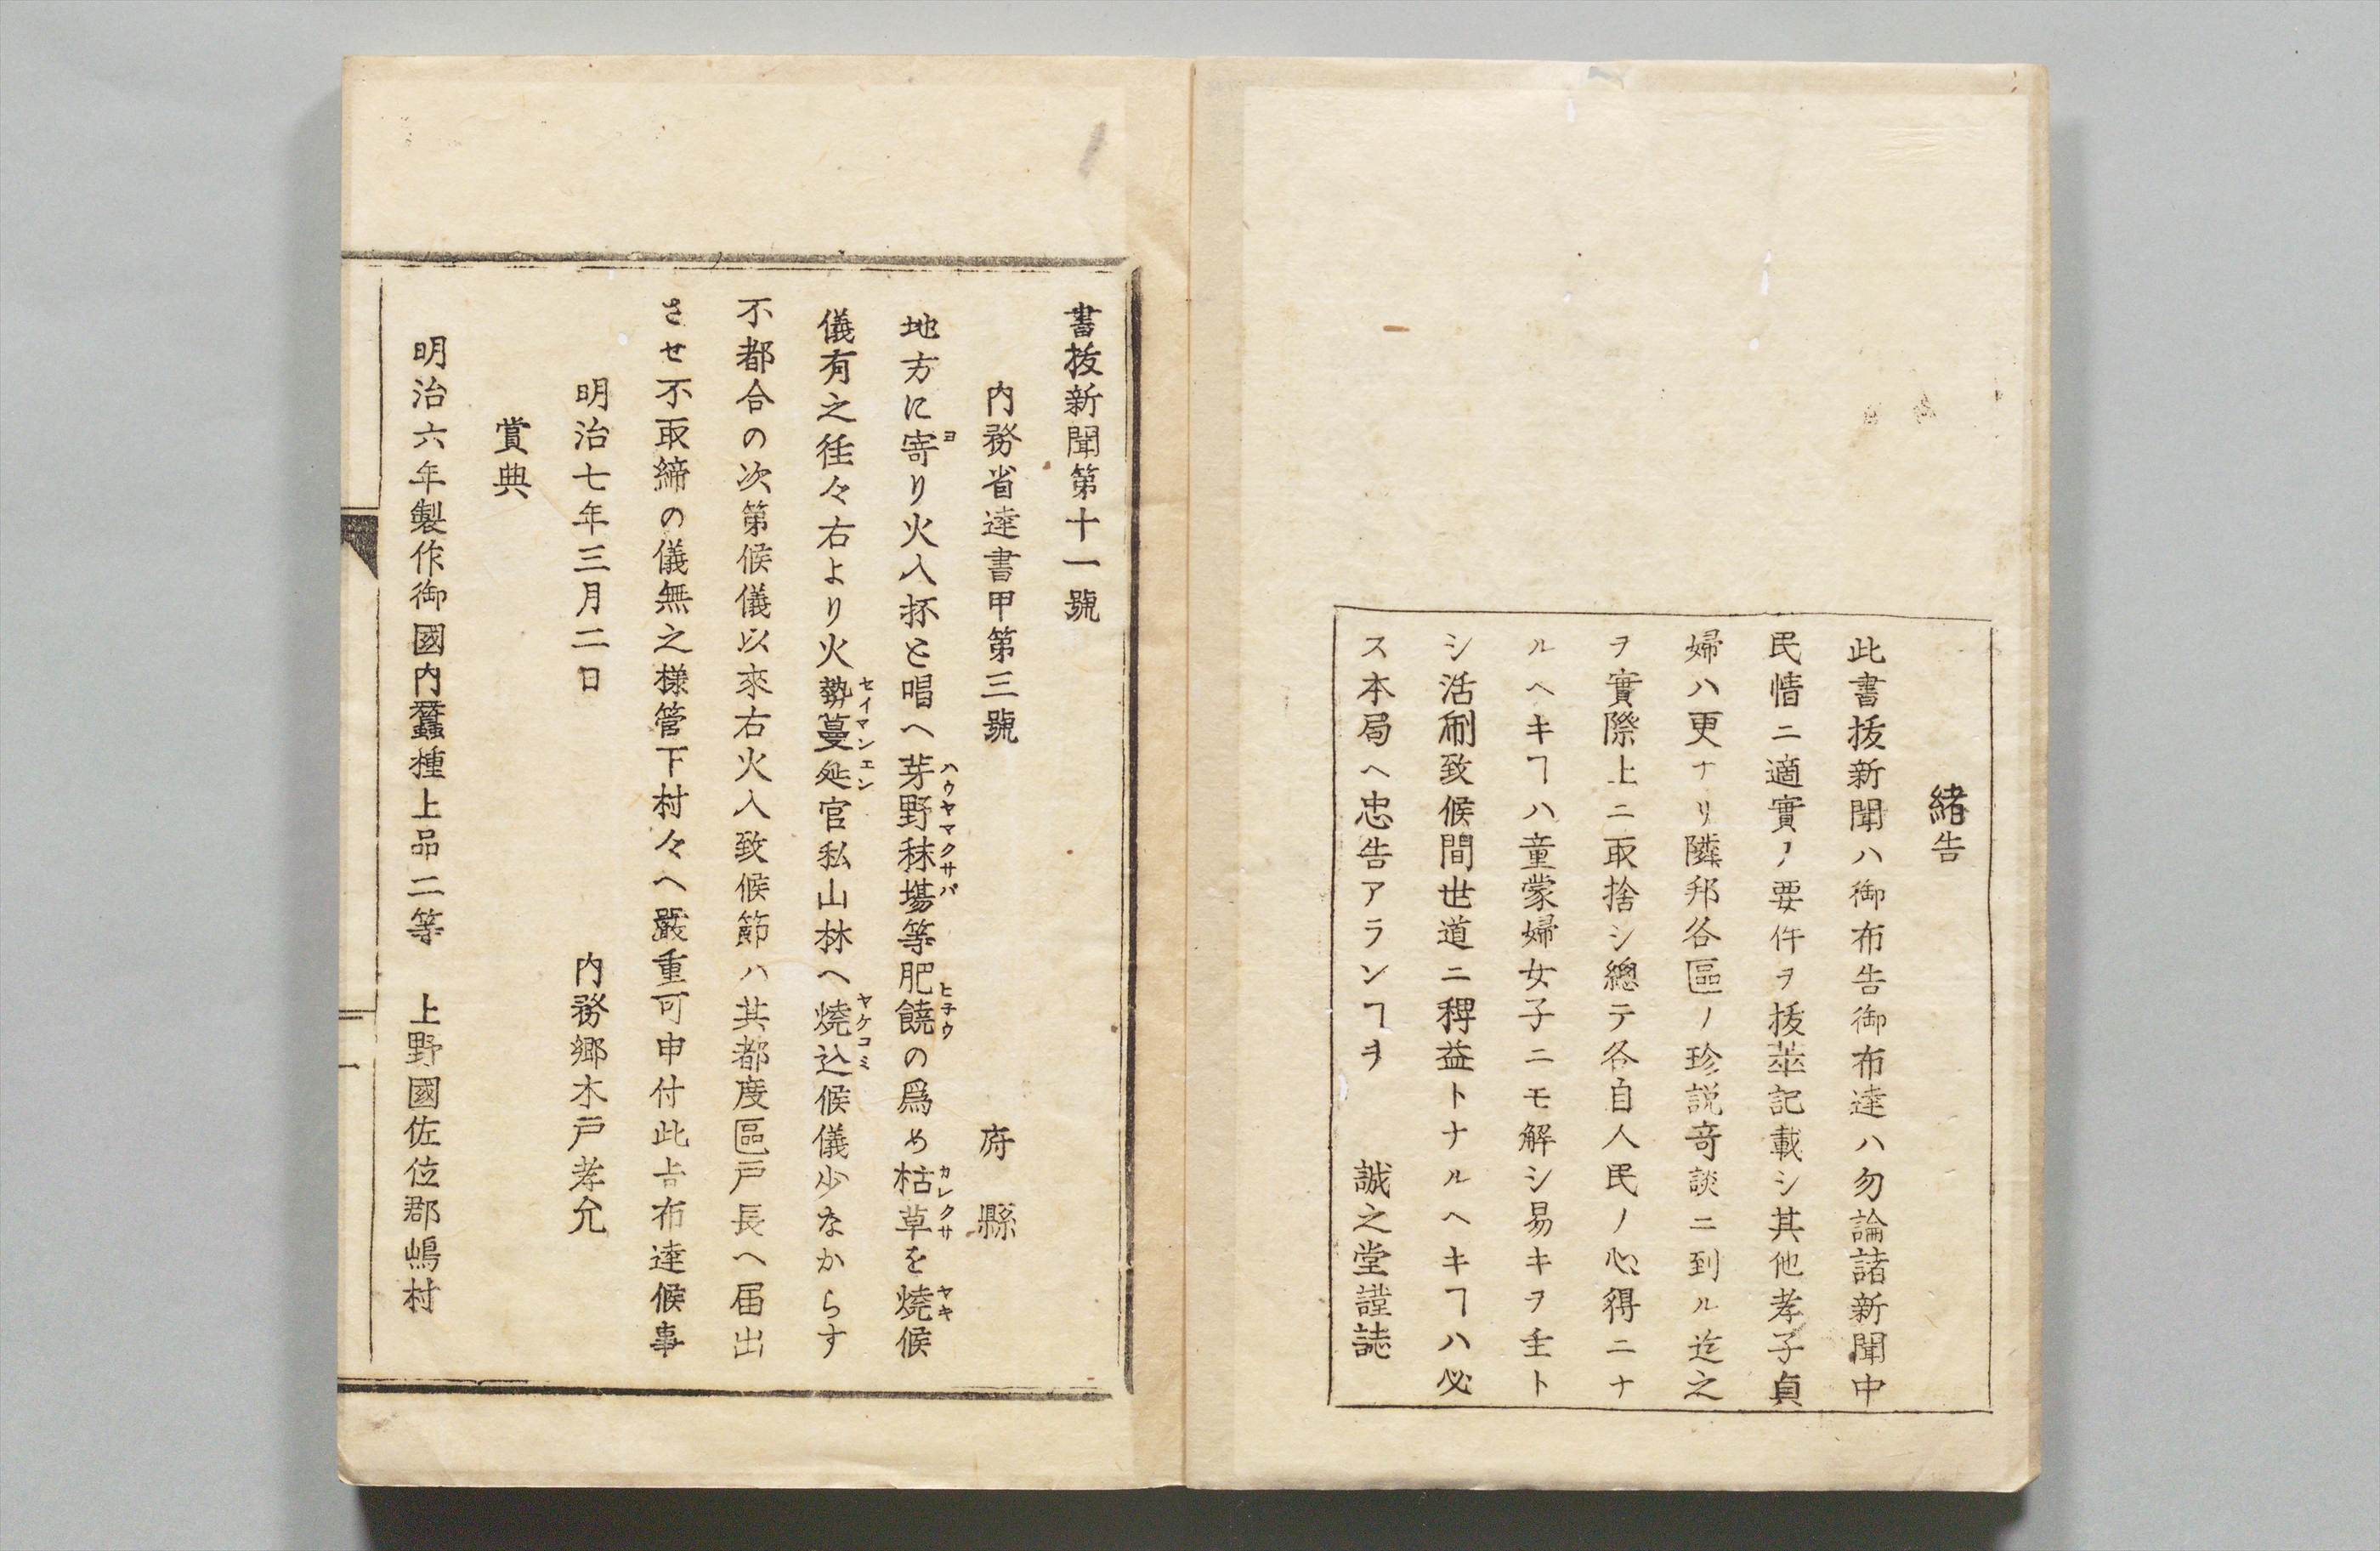 緒告
此書抜新聞ハ御布告御布達ハ勿論諸新聞中
民情ニ適實ノ要件ヲ抜萃記載シ其他孝子貞
婦ハ更ナリ隣邦各區ノ珍説竒談ニ到ル迄之
ヲ實際上ニ取捨シ總テ各自人民ノ心得ニナ
ルヘキヿハ童蒙婦女子ニモ解シ易キヲ主ト
シ活刷致候間世道ニ稗益トナルヘキヿハ必
ス本局ヘ忠告アランヿヲ 誠之堂謹誌
書抜新聞第十一號
内務省達書甲第三號 府縣
地方に寄り火入抔と唱へ芽野秣場等肥饒の爲め枯草を燒候
儀有之徃々右より火勢蔓延官私山林へ燒込候儀少なからす
不都合の次第候儀以來右火入致候節ハ其都度區戸長へ届出
させ不取締の儀無之様管下村々へ嚴重可申付此㫖布達候事
明治七年三月二日 内務郷木戸孝允
賞典
明治六年製作御國内蠶種上品二等 上野國佐位郡嶋村
一